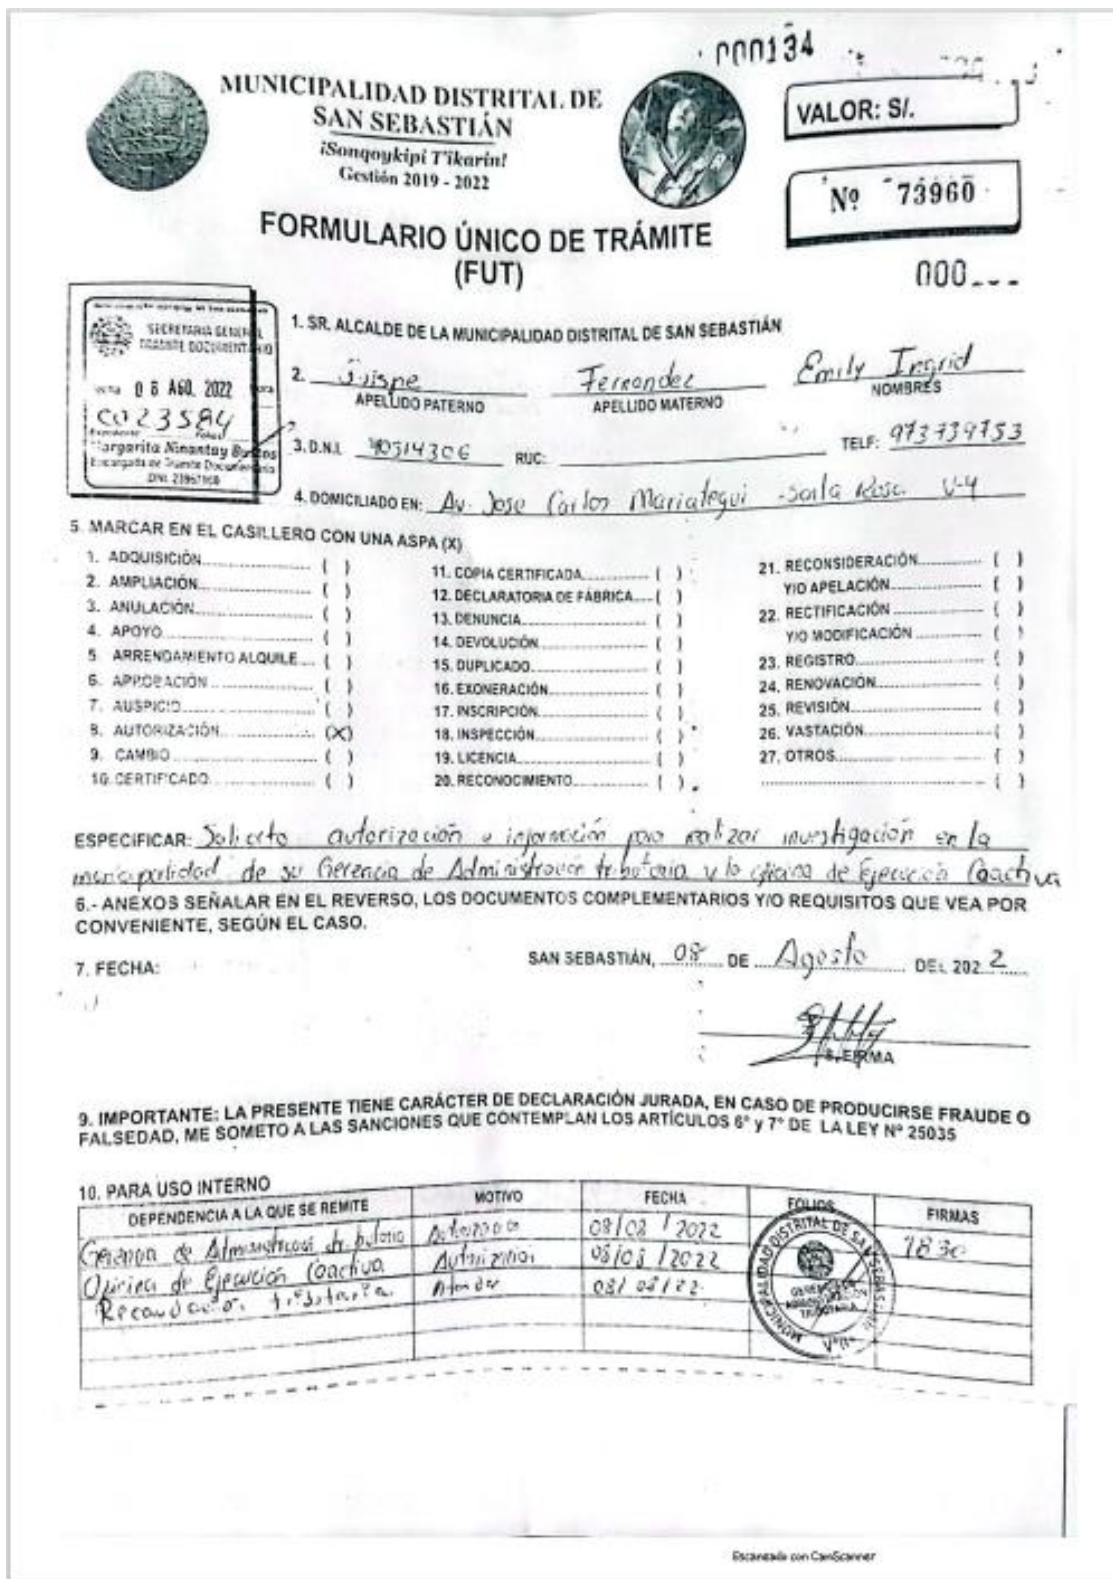 000134
MUNICIPALIDAD DISTRITAL DE
SAN SEBASTIÁN
¡Sonqoykipi T'ikarin!
Gestión 2019 - 2022
VALOR: S/.
Nº 73960
FORMULARIO ÚNICO DE TRÁMITE
(FUT)
000
SECRETARIA GENERAL
TRAMITE DOCUMENTARIO
08 AGO. 2022
C023584
Margarita Ninantay
Encargada de Tramite Documentario
DNI.
1. SR. ALCALDE DE LA MUNICIPALIDAD DISTRITAL DE SAN SEBASTIÁN
2. Quispe Fernandez Emily Ingrid
APELLIDO PATERNO APELLIDO MATERNO NOMBRES
3. D.N.I. 40514306 RUC: TELF: 973739753
4. DOMICILIADO EN: Av. Jose Carlos Mariategui - Santa Rosa V-4
5. MARCAR EN EL CASILLERO CON UNA ASPA (X)
1. ADQUISICIÓN ( )
2. AMPLIACIÓN ( )
3. ANULACIÓN ( )
4. APOYO ( )
5. ARRENDAMIENTO ALQUILE ( )
6. APROBACIÓN ( )
7. AUSPICIO ( )
8. AUTORIZACIÓN (X)
9. CAMBIO ( )
10. CERTIFICADO ( )
11. COPIA CERTIFICADA ( )
12. DECLARATORIA DE FÁBRICA ( )
13. DENUNCIA ( )
14. DEVOLUCIÓN ( )
15. DUPLICADO ( )
16. EXONERACIÓN ( )
17. INSCRIPCIÓN ( )
18. INSPECCIÓN ( )
19. LICENCIA ( )
20. RECONOCIMIENTO ( )
21. RECONSIDERACIÓN ( )
Y/O APELACIÓN ( )
22. RECTIFICACIÓN ( )
Y/O MODIFICACIÓN ( )
23. REGISTRO ( )
24. RENOVACIÓN ( )
25. REVISIÓN ( )
26. VASTACIÓN ( )
27. OTROS ( )
( )
ESPECIFICAR: Solicito autorización e información para realizar investigación en la
municipalidad de su Gerencia de Administración tributaria y la oficina de Ejecución Coactiva
6.- ANEXOS SEÑALAR EN EL REVERSO, LOS DOCUMENTOS COMPLEMENTARIOS Y/O REQUISITOS QUE VEA POR
CONVENIENTE, SEGÚN EL CASO.
7. FECHA: SAN SEBASTIÁN, 08 DE Agosto DEL 2022
8. FIRMA
9. IMPORTANTE: LA PRESENTE TIENE CARÁCTER DE DECLARACIÓN JURADA, EN CASO DE PRODUCIRSE FRAUDE O
FALSEDAD, ME SOMETO A LAS SANCIONES QUE CONTEMPLAN LOS ARTÍCULOS 6° y 7° DE LA LEY Nº 25035
10. PARA USO INTERNO
DEPENDENCIA A LA QUE SE REMITE MOTIVO FECHA FOLIOS FIRMAS
Gerencia de Administración tributaria 08/08/2022 1830
Oficina de Ejecución Coactiva 08/08/2022
Recaudación tributaria Atender 08/08/22
MUNICIPALIDAD DISTRITAL DE SAN SEBASTIAN
GERENCIA DE
TRIBUTARIA
VºBº
Escaneado con CamScanner